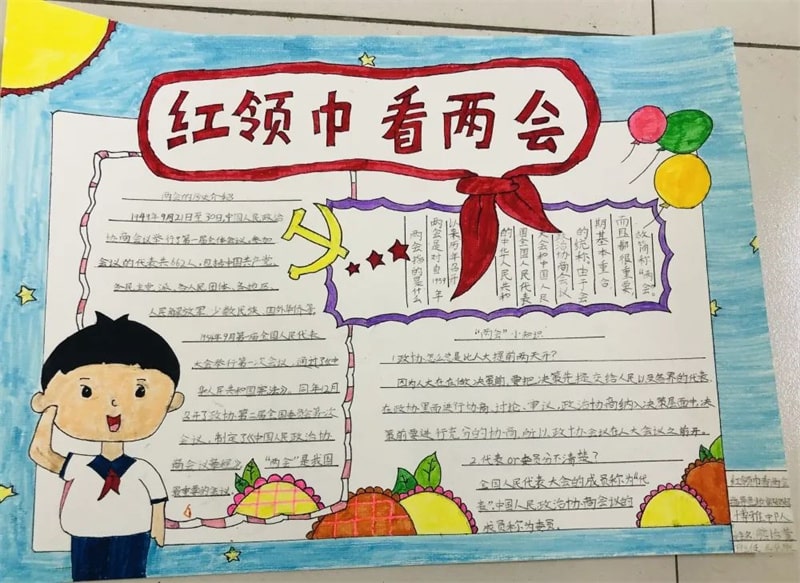 红领巾看两会
两会的历史介绍
1949年9月21日至30日,中国人民政治
协商会议举行了第一届全体会议,参加
会议的代表共662人,包括中国共产党、
各民主党派、各人民团体、各地区、
人民解放军、少数民族、国外华侨等
1954年9月第一届全国人民代表
大会举行第一次会议,通过了《中
华人民共和国宪法》。同年12月
召开了政协第二届全国委员会第一次
会议,制定了《中国人民政治协
商会议章程》 “两会”是我国
最重要的会议。
两会指的是什么
两会是对自1959年
以来历年召开
的中华人民共和
国全国人民代表
大会和中国人民
政治协商会议
的统称,由于会
期基本重合
而且都很重要,
故简称“两会”
“两会”小知识
1.政协怎么总是比人大提前两天开?
因为人大在做决策前,要把决策先提交给人民以及各界的代表,
在政协里面进行协商、讨论、审议,政治协商纳入决策层面中,决
策前要进行充分的协商,所以政协会议在人大会议之前开。
2.代表or委员分不清楚?
全国人民代表大会的成员称为“代
表”,中国人民政治协商会议的
成员称为委员。
红领巾看两会